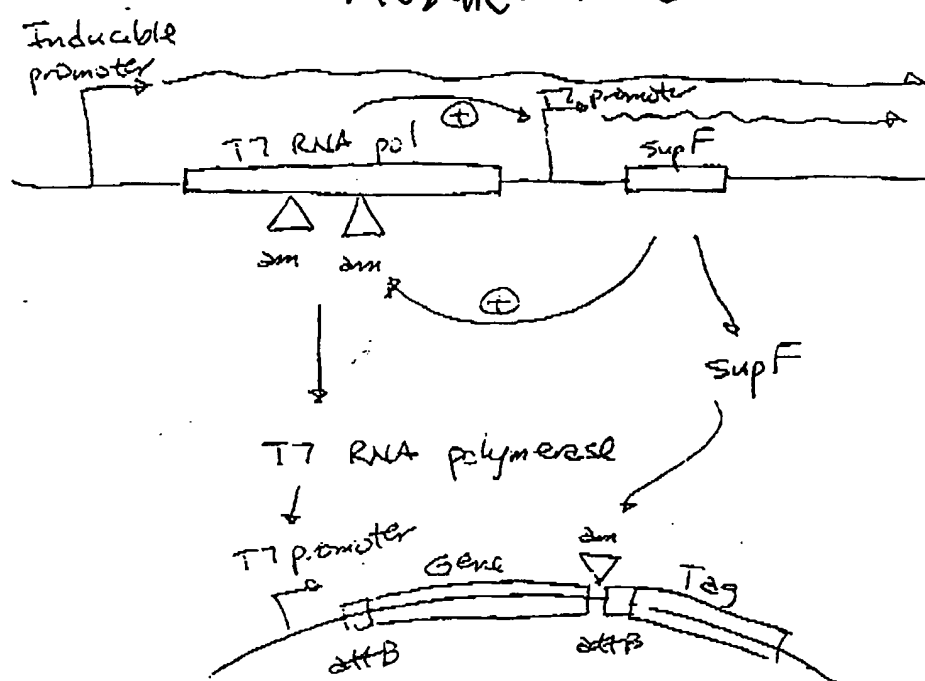 Inducible
promoter
T7 promoter
+
T7 RNA pol
supF
am am
+
supF
T7 RNA polymerase
am
T7 promoter
Gene
Tag
attB
attB